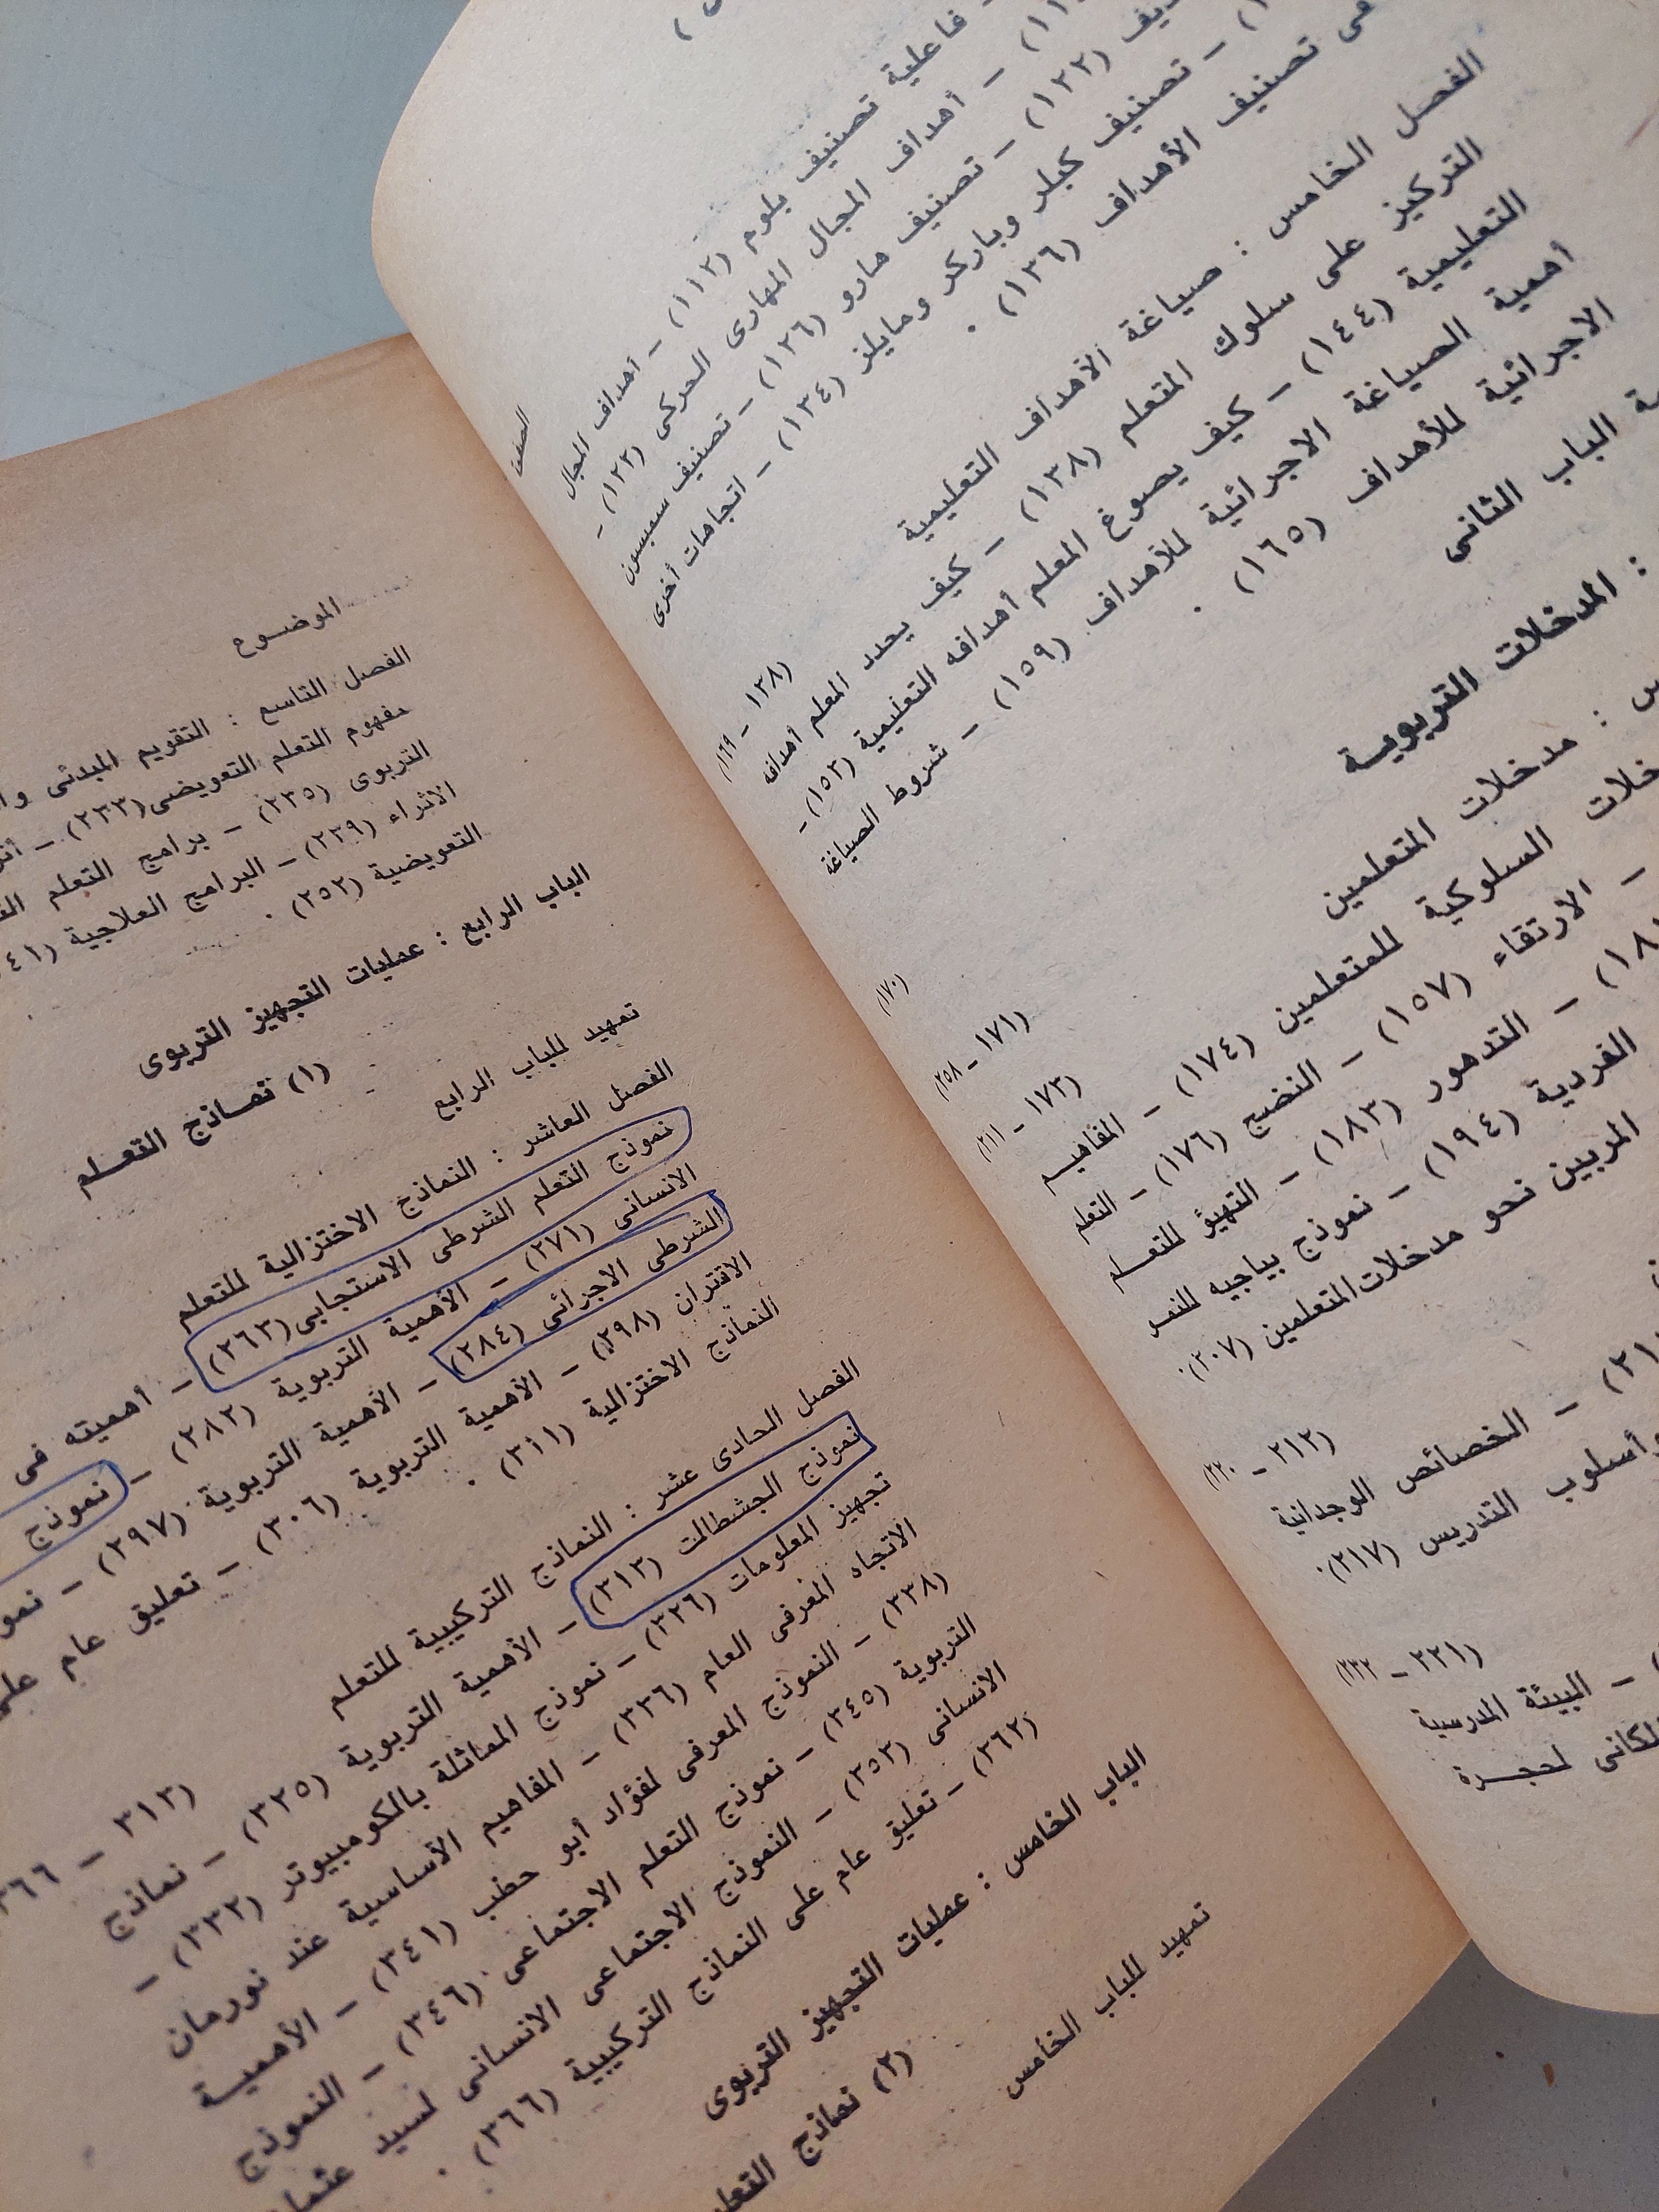 الصفحة
فاعلية تصنيف بلوم (١١٢) – أهداف المجال
– أهداف المجال المهارى الحركى (١٢٣) –
(١٢٢) – تصنيف هارو (١٢٦) – تصنيف سمبسون
– تصنيف كبلر وباركر ومايلز (١٣٤) – اتجاهات أخرى
فى تصنيف الأهداف (١٣٦) .
الفصل الخامس : صياغة الأهداف التعليمية
(١٣٨ – ١٦٩)
التركيز على سلوك المتعلم (١٣٨) – كيف يحدد المعلم أهدافه
التعليمية (١٤٤) – كيف يصوغ المعلم أهدافه التعليمية (١٥٢) –
أهمية الصياغة الاجرائية للأهداف (١٥٩) – شروط الصياغة
الاجرائية للأهداف (١٦٥) .
الباب الثانى
(١٧٠)
: المدخلات التربوية
(١٧١ – ٢٥٨)
: مدخلات المتعلمين
(١٧٣ – ٢١١)
السلوكية للمتعلمين (١٧٤) – المفاهيم
– الارتقاء (١٥٧) – النضج (١٧٦) – التعلم
– التدهور (١٨٣) – التهيؤ للتعلم
الفردية (١٩٤) – نموذج بياجيه للنمو
المربين نحو مدخلات المتعلمين (٢٠٧) .
(٢١٢ – ٢٢٠)
– الخصائص الوجدانية
وأسلوب التدريس (٢١٧) .
(٢٢١ – ٢٣٢)
– البيئة المدرسية
لحجرة
الموضوع
الفصل التاسع : التقويم المبدئى
مفهوم التعلم التعويضى (٢٣٣) –
التربوى (٢٣٥) – برامج التعلم
الاثراء (٢٣٩) – البرامج العلاجية
التعويضية (٢٥٢) .
الباب الرابع : عمليات التجهيز التربوى
(١) نماذج التعلم
تمهيد للباب الرابع
الفصل العاشر : النماذج الاختزالية للتعلم
نموذج التعلم الشرطى الاستجابى (٢٦٣) – أهميته فى
الانسانى (٢٧١) – الأهمية التربوية (٢٨٢) – نموذج
الشرطى الاجرائى (٢٨٤) – الأهمية التربوية (٢٩٧) –
الاقتران (٢٩٨) – الأهمية التربوية (٣٠٦) – تعليق عام على
النماذج الاختزالية (٣١١) .
الفصل الحادى عشر : النماذج التركيبية للتعلم
٣١٣)
نموذج الجشطالت (٣١٣) – الأهمية التربوية (٣٢٥) – نماذج
تجهيز المعلومات (٣٢٦) – نموذج المماثلة بالكومبيوتر (٣٣٢) –
الاتجاه المعرفى العام (٣٣٦) – المفاهيم الأساسية عند نورمان
(٣٣٨) – النموذج المعرفى لفؤاد أبو حطب (٣٤١) – الأهمية
التربوية (٣٤٥) – نموذج التعلم الاجتماعى (٣٤٦) – النموذج
الانسانى (٣٥٢) – النموذج الاجتماعى الانسانى لسيد
(٣٦٢) – تعليق عام على النماذج التركيبية (٣٦٦) .
الباب الخامس : عمليات التجهيز التربوى
(٢) نماذج
تمهيد للباب الخامس